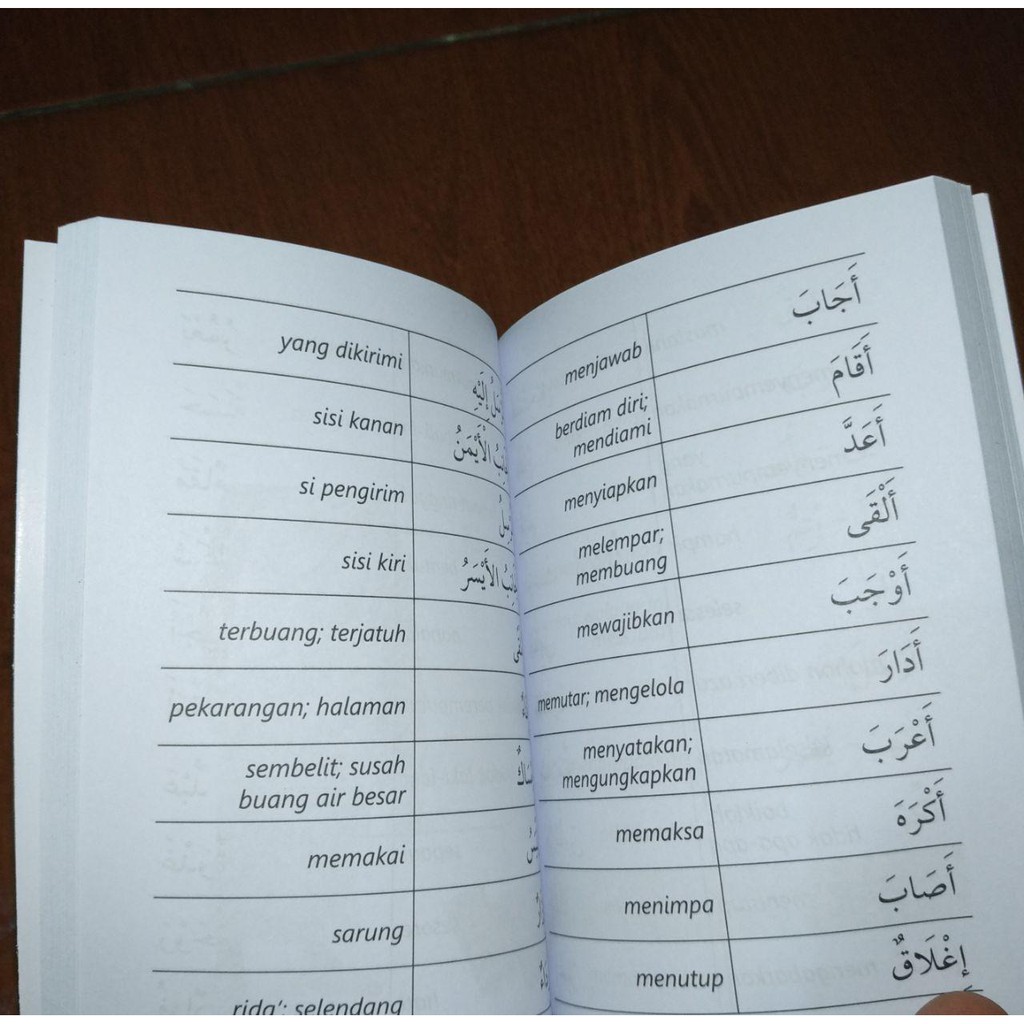 yang dikirimi إِلَيْهِ
sisi kanan الْأَيْمَنُ
si pengirim
sisi kiri الْأَيْسَرُ
terbuang; terjatuh
pekarangan; halaman
sembelit; susah
buang air besar
memakai
sarung
rida'; selendang
menjawab أَجَابَ
berdiam diri; أَقَامَ
mendiami
menyiapkan أَعَدَّ
melempar; أَلْقَى
membuang
mewajibkan أَوْجَبَ
memutar; mengelola أَدَارَ
menyatakan; أَعْرَبَ
mengungkapkan
memaksa أَكْرَهَ
menimpa أَصَابَ
menutup إِغْلَاقٌ